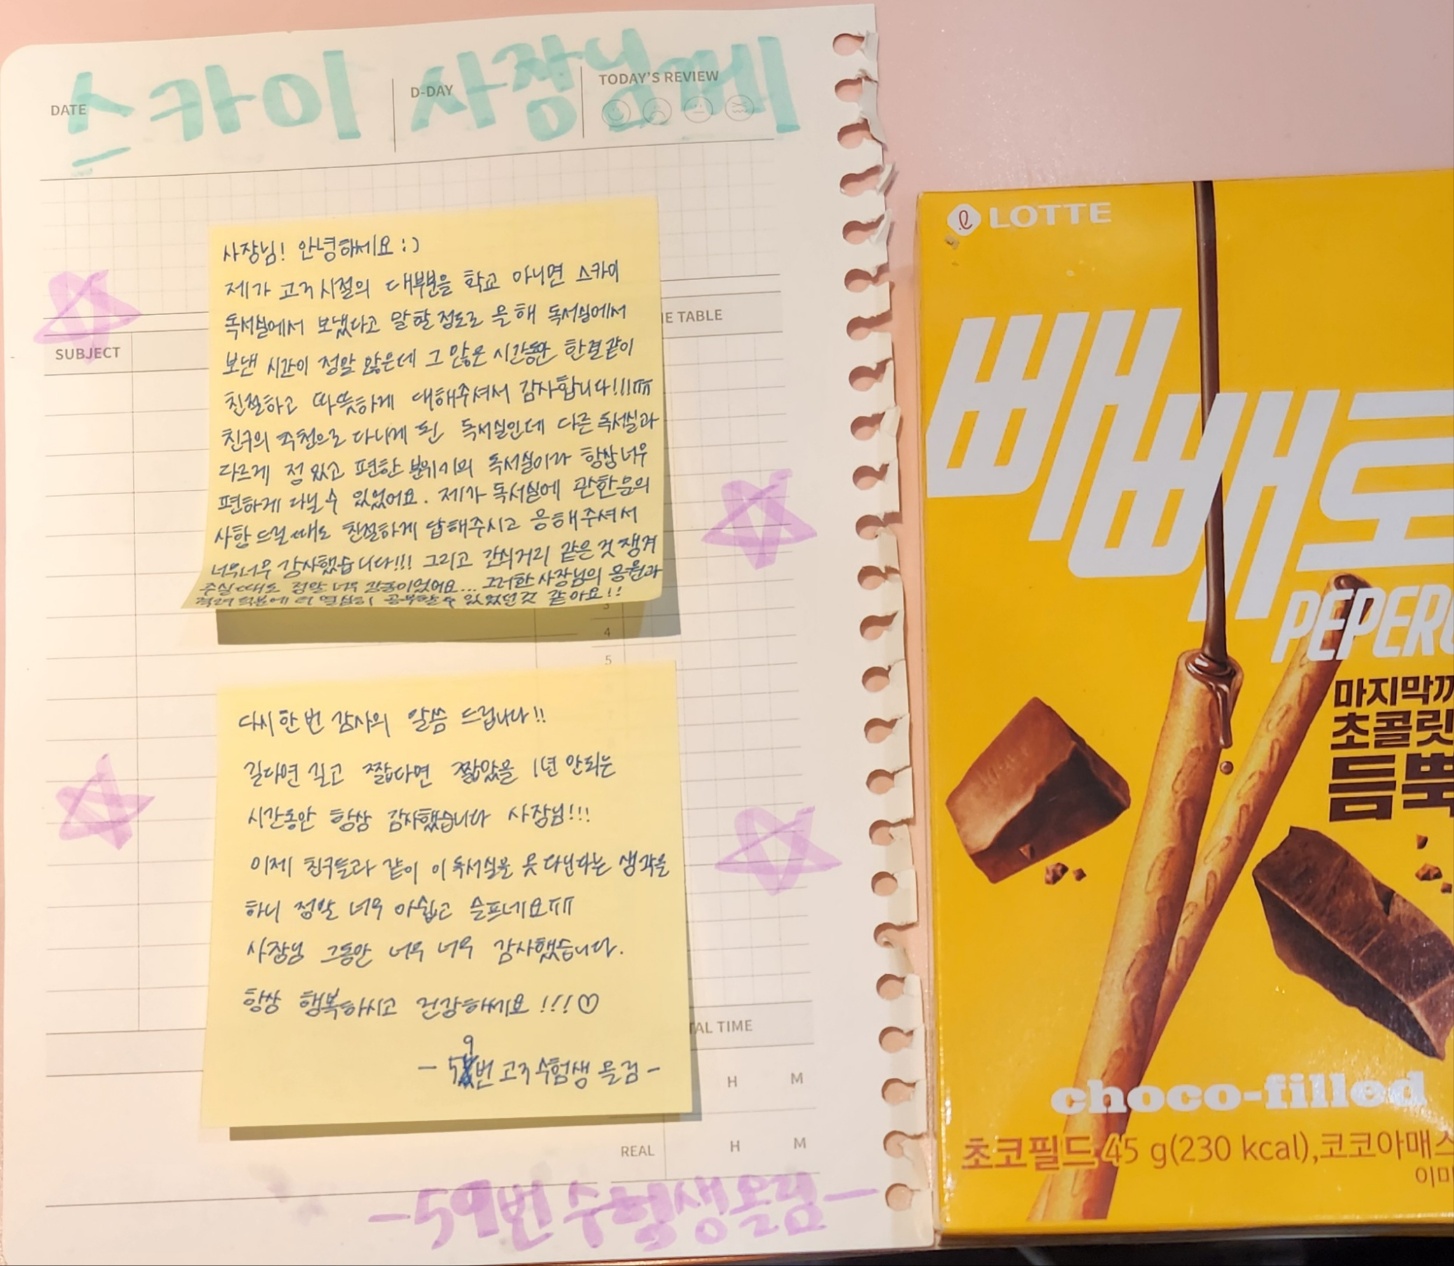 스카이 사장님께
DATE
D-DAY
TODAY'S REVIEW
사장님! 안녕하세요 :)
제가 고3 시절의 대부분을 학교 아니면 스카이
독서실에서 보냈다고 말할 정도로 올해 독서실에서
보낸 시간이 정말 많은데 그 많은 시간동안 한결같이
친절하고 따뜻하게 대해주셔서 감사합니다!!!ㅠㅠ
친구의 추천으로 다니게 된 독서실인데 다른 독서실과
다르게 정 있고 편한 분위기의 독서실이라 항상 너무
편하게 다닐 수 있었어요. 제가 독서실에 관한 문의
사항 드릴 때도 친절하게 답해주시고 응해주셔서
너무너무 감사했습니다!!! 그리고 간식거리 같은 것 챙겨
주실 때도 정말 너무 감동이었어요... 그러한 사장님의 응원과
격려 덕분에 더 열심히 공부할 수 있었던 것 같아요!!
SUBJECT
ME TABLE
3
4
5
다시 한 번 감사의 말씀 드립니다!!
길다면 길고 짧다면 짧았을 1년 안되는
시간동안 항상 감사했습니다 사장님!!!
이제 친구들과 같이 이 독서실을 못 다닌다는 생각을
하니 정말 너무 아쉽고 슬프네요ㅠㅠ
사장님 그동안 너무 너무 감사했습니다.
항상 행복하시고 건강하세요!!!♡
- 59번 고3 수험생 올림 -
TAL TIME
H M
REAL H M
-59번 수험생 올림-
LOTTE
빼빼로
PEPERO
마지막까
초콜릿
듬뿍
choco-filled
초코필드 45 g(230 kcal),코코아매스
이미